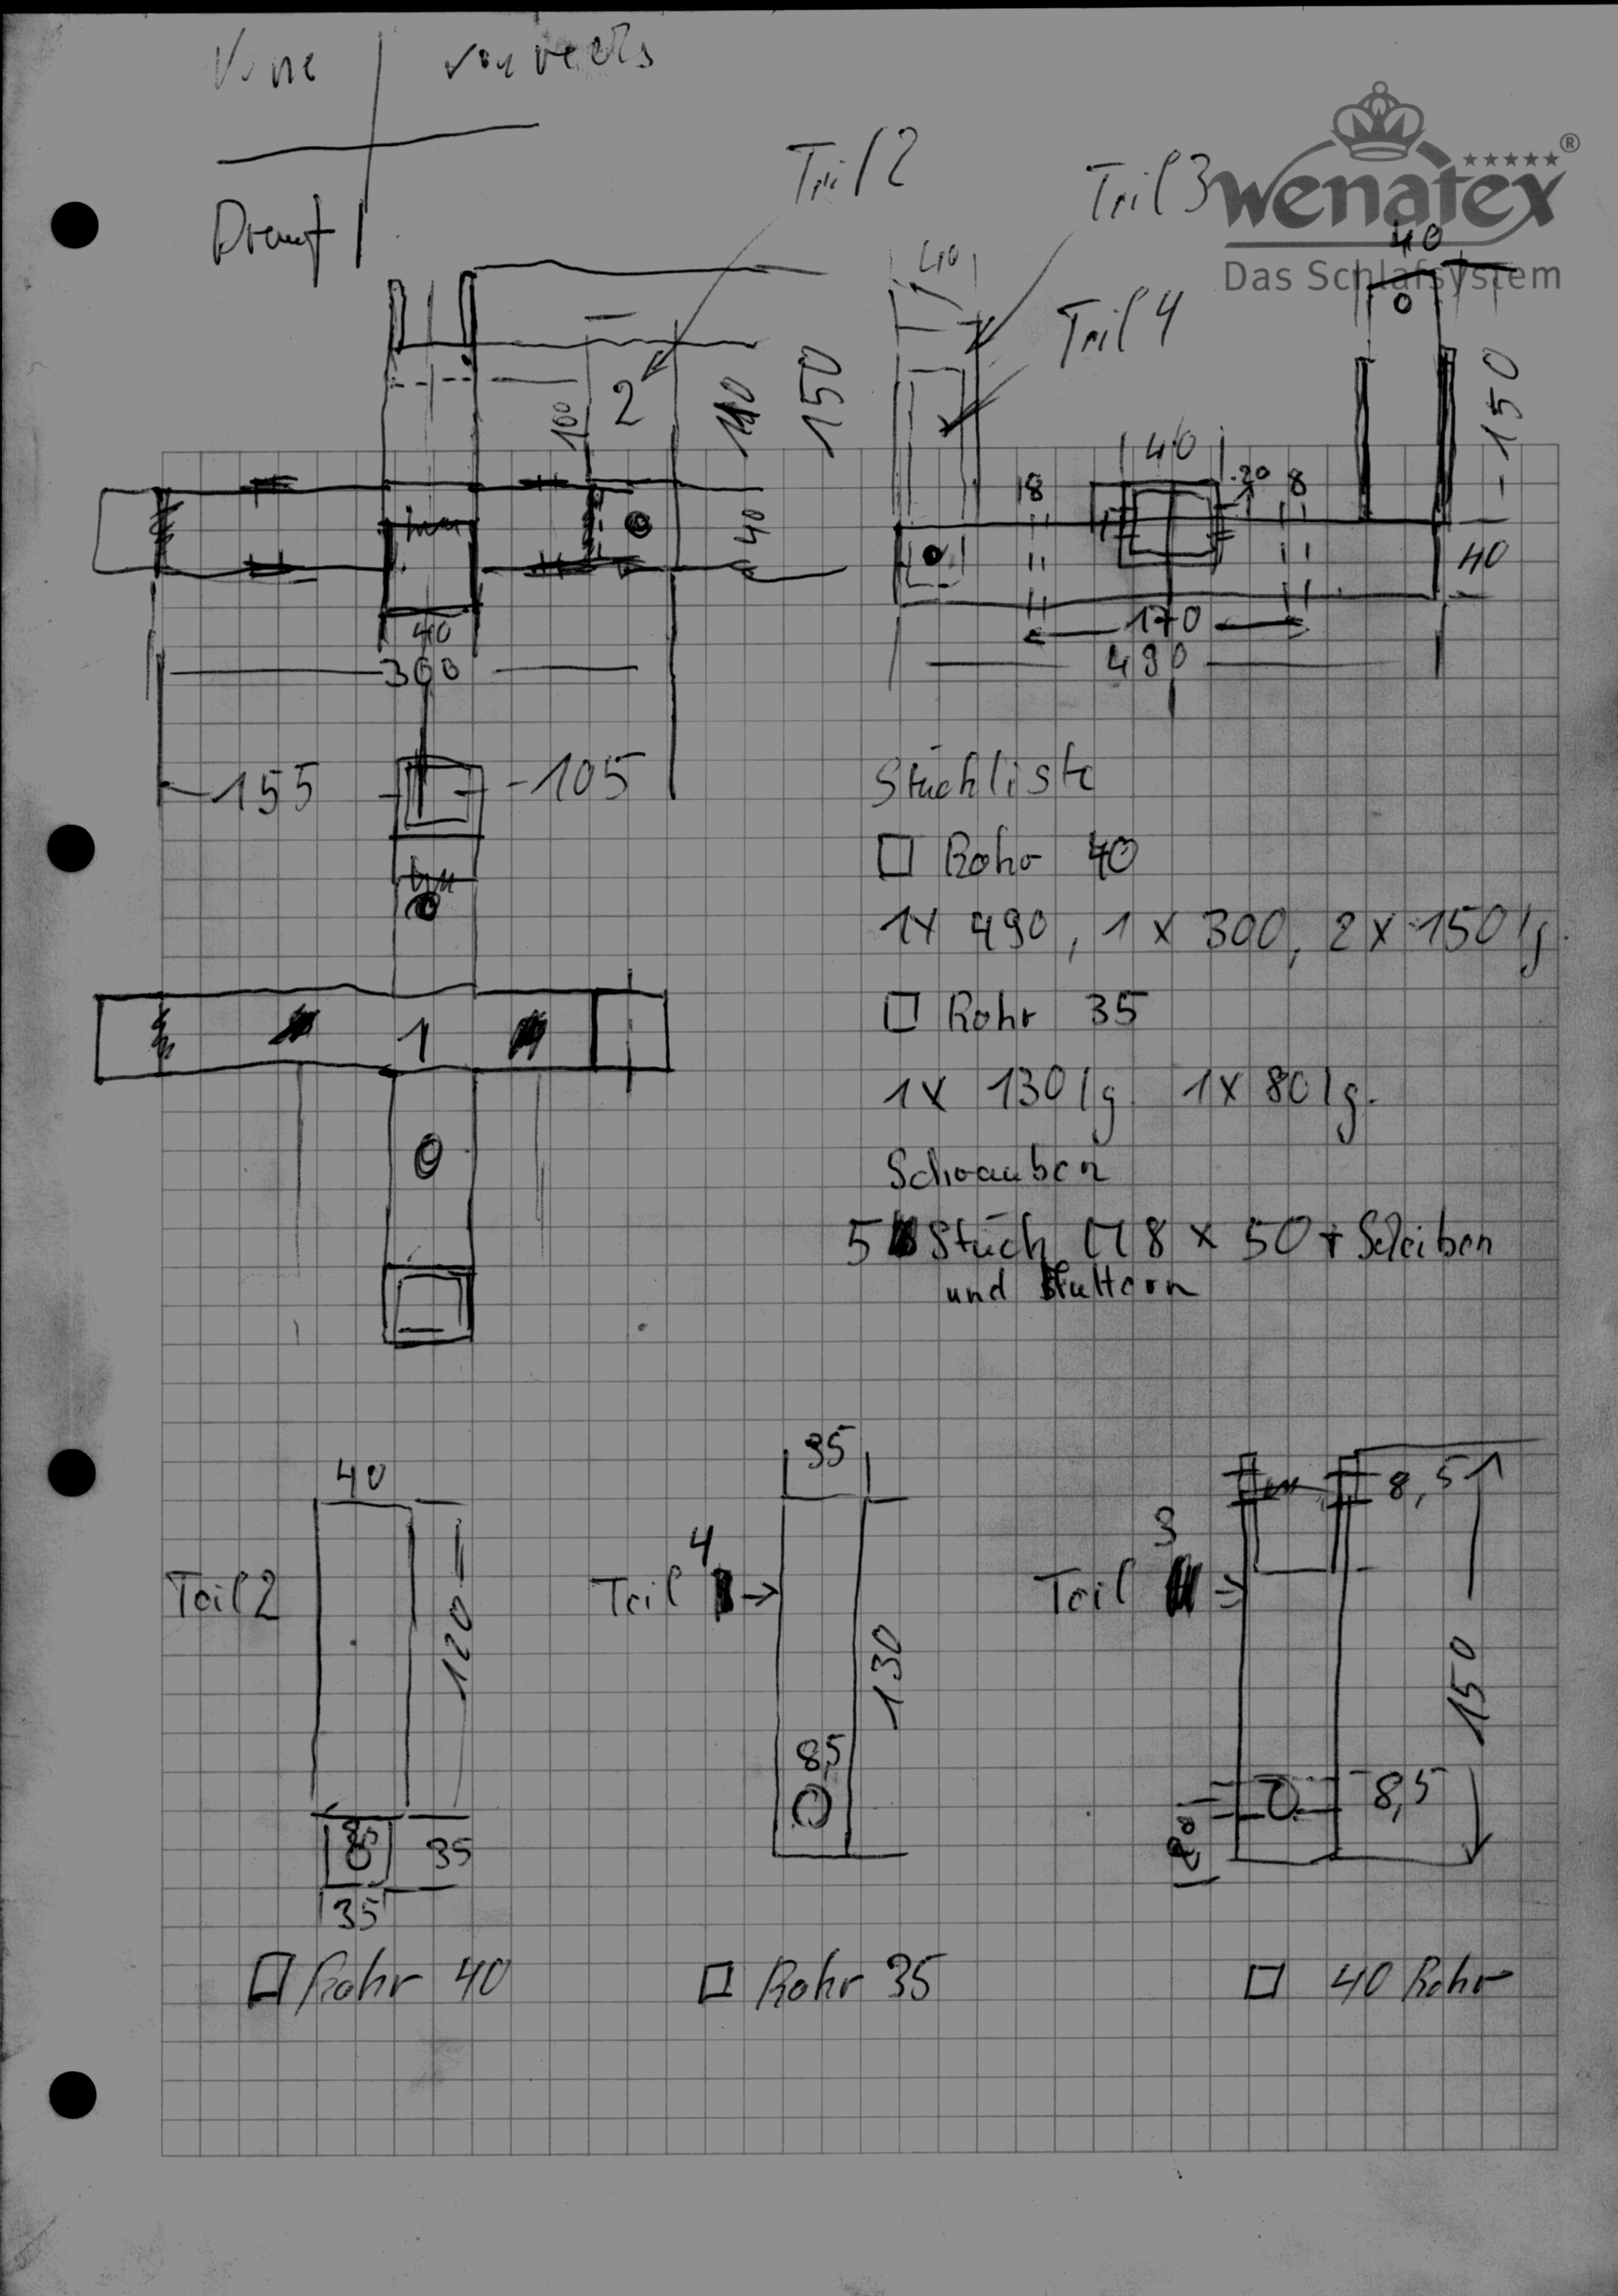 Vorne | von rechts
Drauf
Teil 2
Teil 3
wenatex®
Das Schlafsystem
40
40
Teil 4
2
100
110
150
40
150
40
8
20
8
40
40
40
170
300
490
155
105
Stückliste
□ Rohr 40
1x 490, 1x 300, 2x 150 lg.
1
□ Rohr 35
1x 130 lg. 1x 80 lg.
Schrauben
5 Stück M8 x 50 + Scheiben
und Muttern
40
35
8,5
4
3
Teil 2
120
Teil
130
Teil
150
8,5
8,5
8,5
35
20
35
□ Rohr 40
□ Rohr 35
□ 40 Rohr